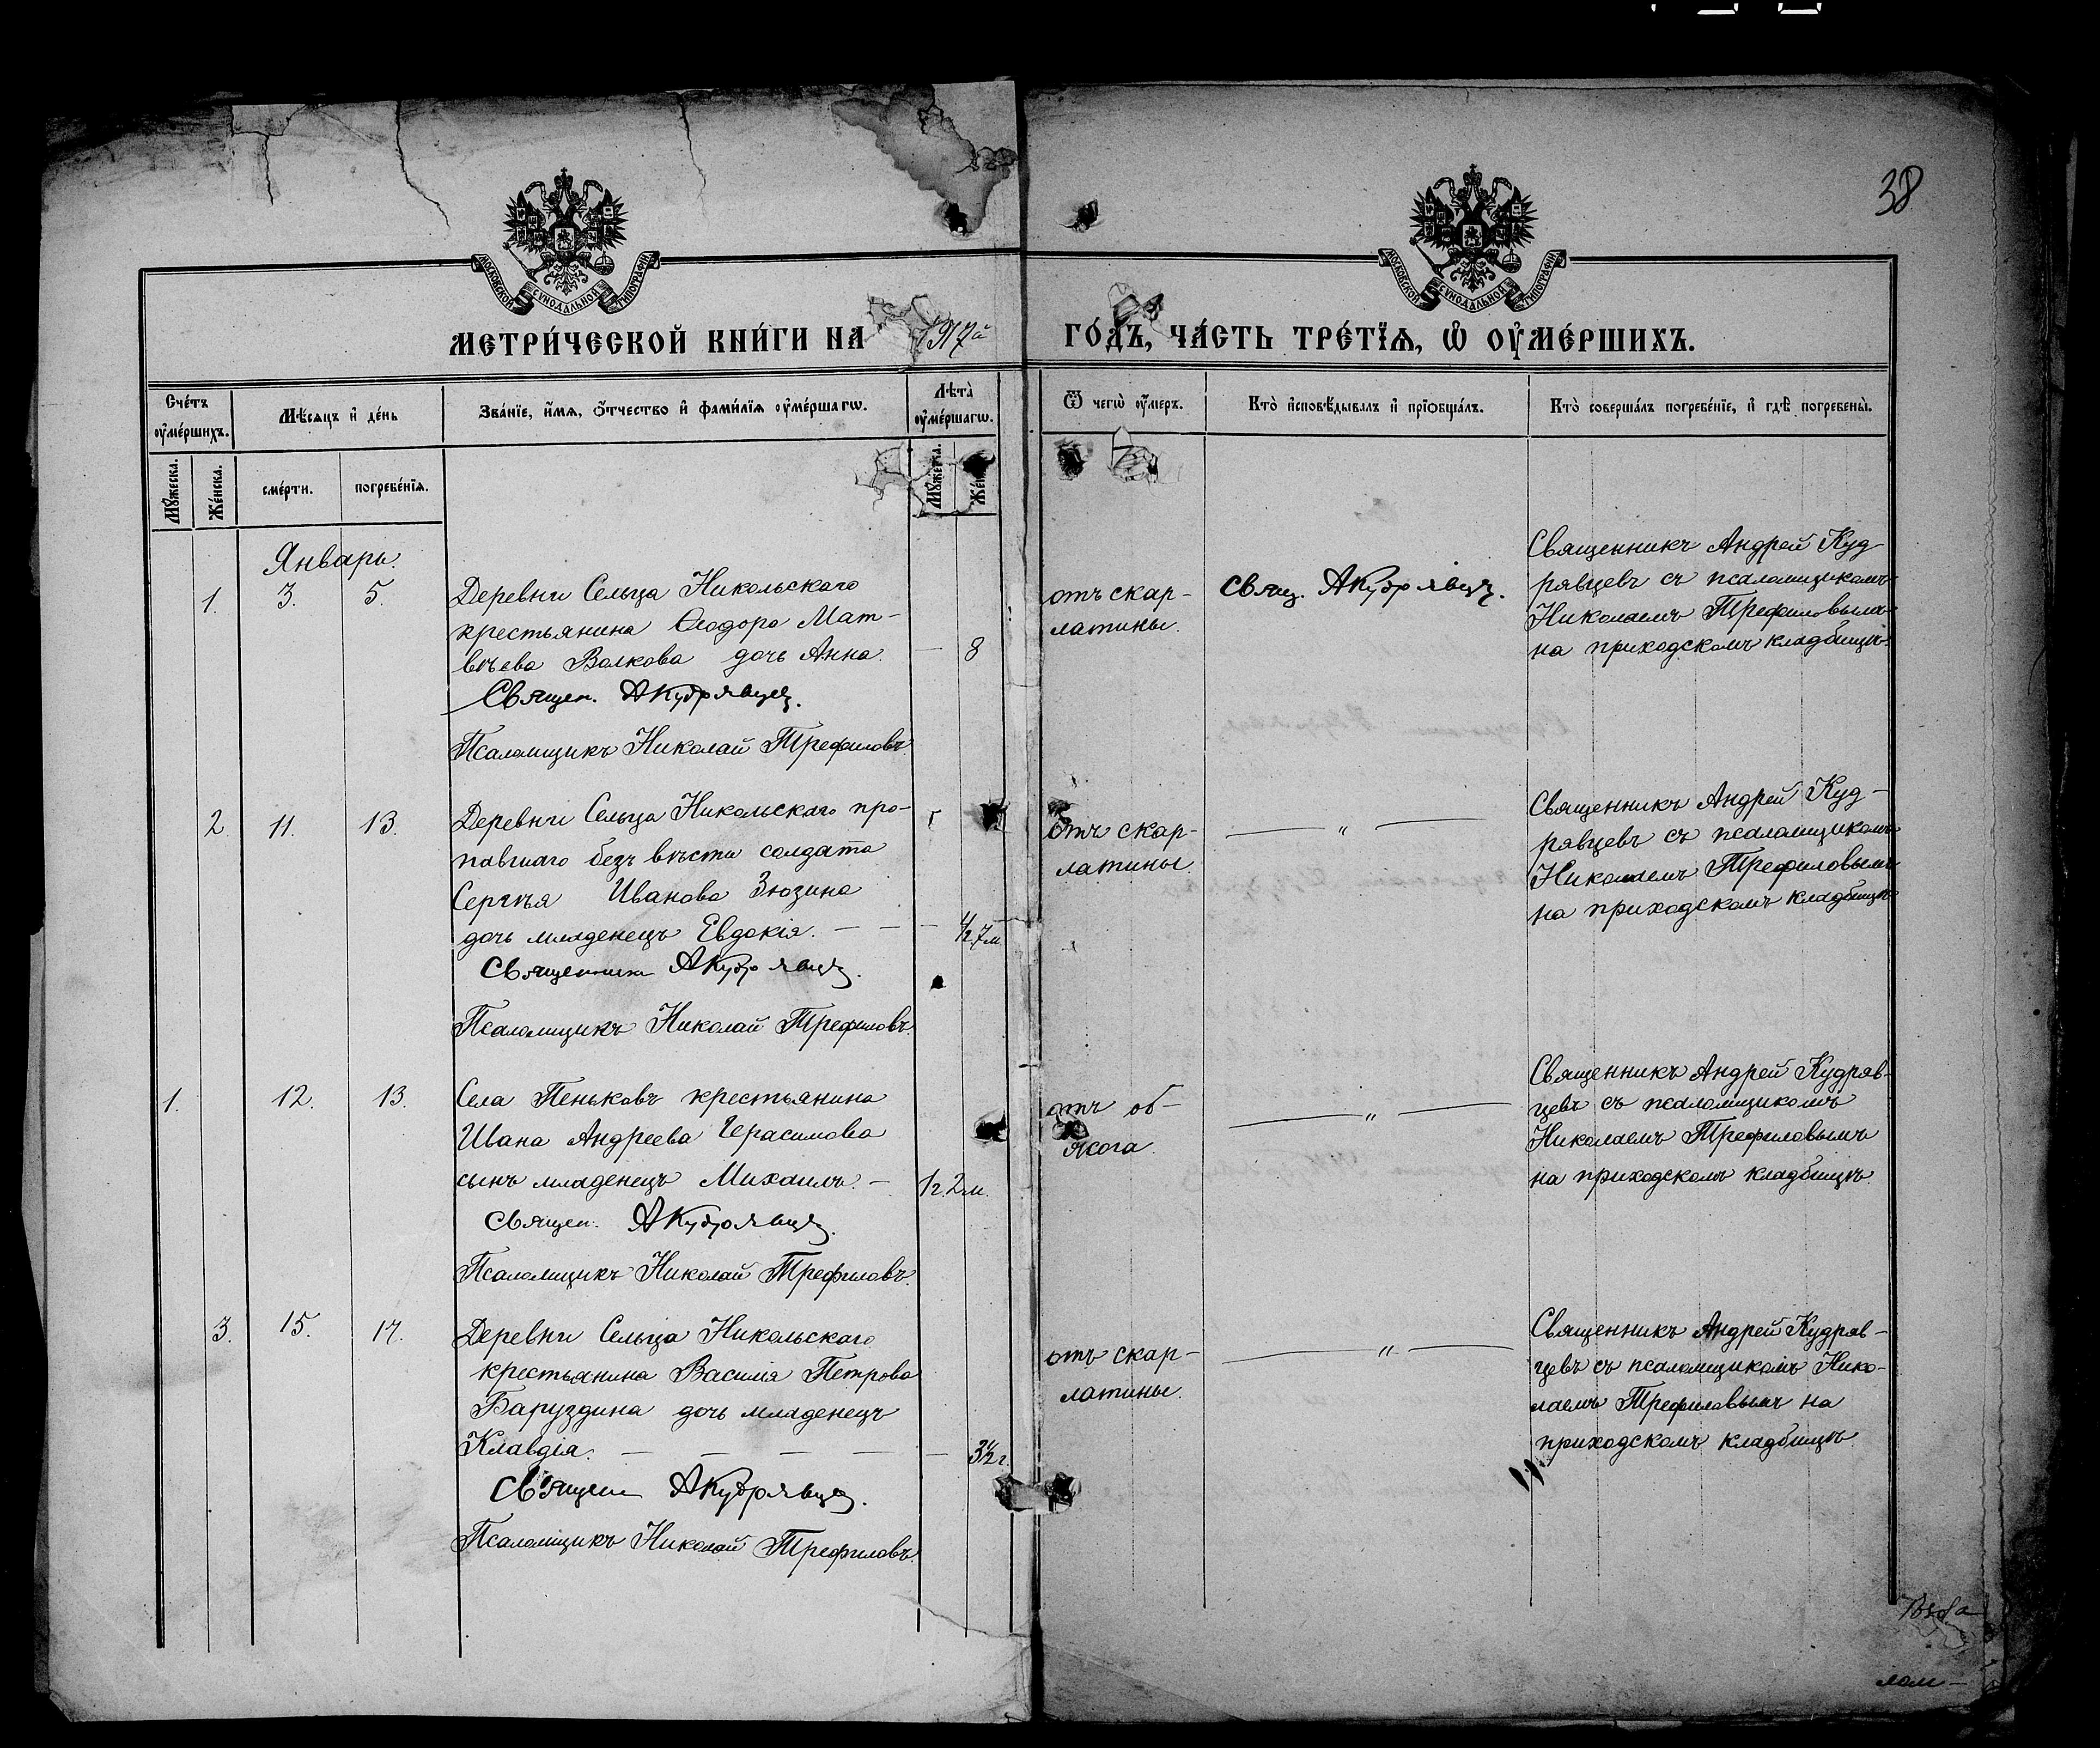 38
МОСКОВСКОЙ СѴНОДАЛЬНОЙ ТИПОГРАФІИ
МОСКОВСКОЙ СѴНОДАЛЬНОЙ ТИПОГРАФІИ
МЕТРИ́ЧЕСКОЙ КНИ́ГИ НА 1917й ГО́ДЪ, ЧА́СТЬ ТРЕ́ТЇѦ, Ѡ҆ ОУ҆МЕ́РШИХЪ.
Сче́тъ оу҆ме́ршихъ.
Мѣ́сѧцъ и҆ де́нь
Зва́нїе, и҆́мѧ, ѻ҆́тчество и҆ фами́лїѧ оу҆ме́ршагѡ.
Лѣ́та̀ оу҆ме́ршагѡ.
Ѿ чегѡ̀ оу҆́меръ.
Кто̀ и҆сповѣ́дывалъ и҆ прїѻбща́лъ.
Кто̀ соверша́лъ погребе́нїе, и҆ гдѣ̀ погребены̀.
Мꙋ́жеска.
Же́нска.
сме́рти.
погребе́нїѧ.
Мꙋ́жеска.
Январь.
1. 3. 5.
Деревни Сельца Никольскаго
крестьянина Ѳеодора Мат-
вѣева Волкова дочь Анна. — 8
Священ. АКудрявцев.
Псаломщикъ Николай Трефиловъ.
отъ скар-
латины.
Свящ. АКудрявцев.
Священникъ Андрей Куд
рявцевъ съ псаломщикомъ
Николаемъ Трефиловымъ
на приходскомъ кладбищѣ.
2. 11. 13.
Деревни Сельца Никольскаго про-
павшаго безъ вѣсти солдата
Сергѣя Иванова Зюзина
дочь младенецъ Евдокія. — — — 7м.
Священник АКудрявцев.
Псаломщикъ Николай Трефиловъ.
отъ скар-
латины.
— „ —
Священникъ Андрей Куд-
рявцевъ съ псаломщикомъ
Николаемъ Трефиловымъ
на приходскомъ кладбищѣ
1. 12. 13.
Села Пеньковъ крестьянина
Ивана Андреева Герасимова
сынъ младенецъ Михаилъ. — 1г. 2м.
Священ. АКудрявцев.
Псаломщикъ Николай Трефиловъ.
отъ об-
жога.
— „ —
Священникъ Андрей Кудряв-
цевъ съ псаломщикомъ
Николаемъ Трефиловымъ
на приходскомъ кладбищѣ.
3. 15. 17.
Деревни Сельца Никольскаго
крестьянина Василія Петрова
Баруздина дочь младенецъ
Клавдія. — — — — — 3½г.
Священ АКудрявцев.
Псаломщикъ Николай Трефиловъ.
отъ скар-
латины.
— „ —
Священникъ Андрей Кудряв-
цевъ съ псаломщикомъ Нико-
лаемъ Трефиловымъ на
приходскомъ кладбищѣ.
лом-